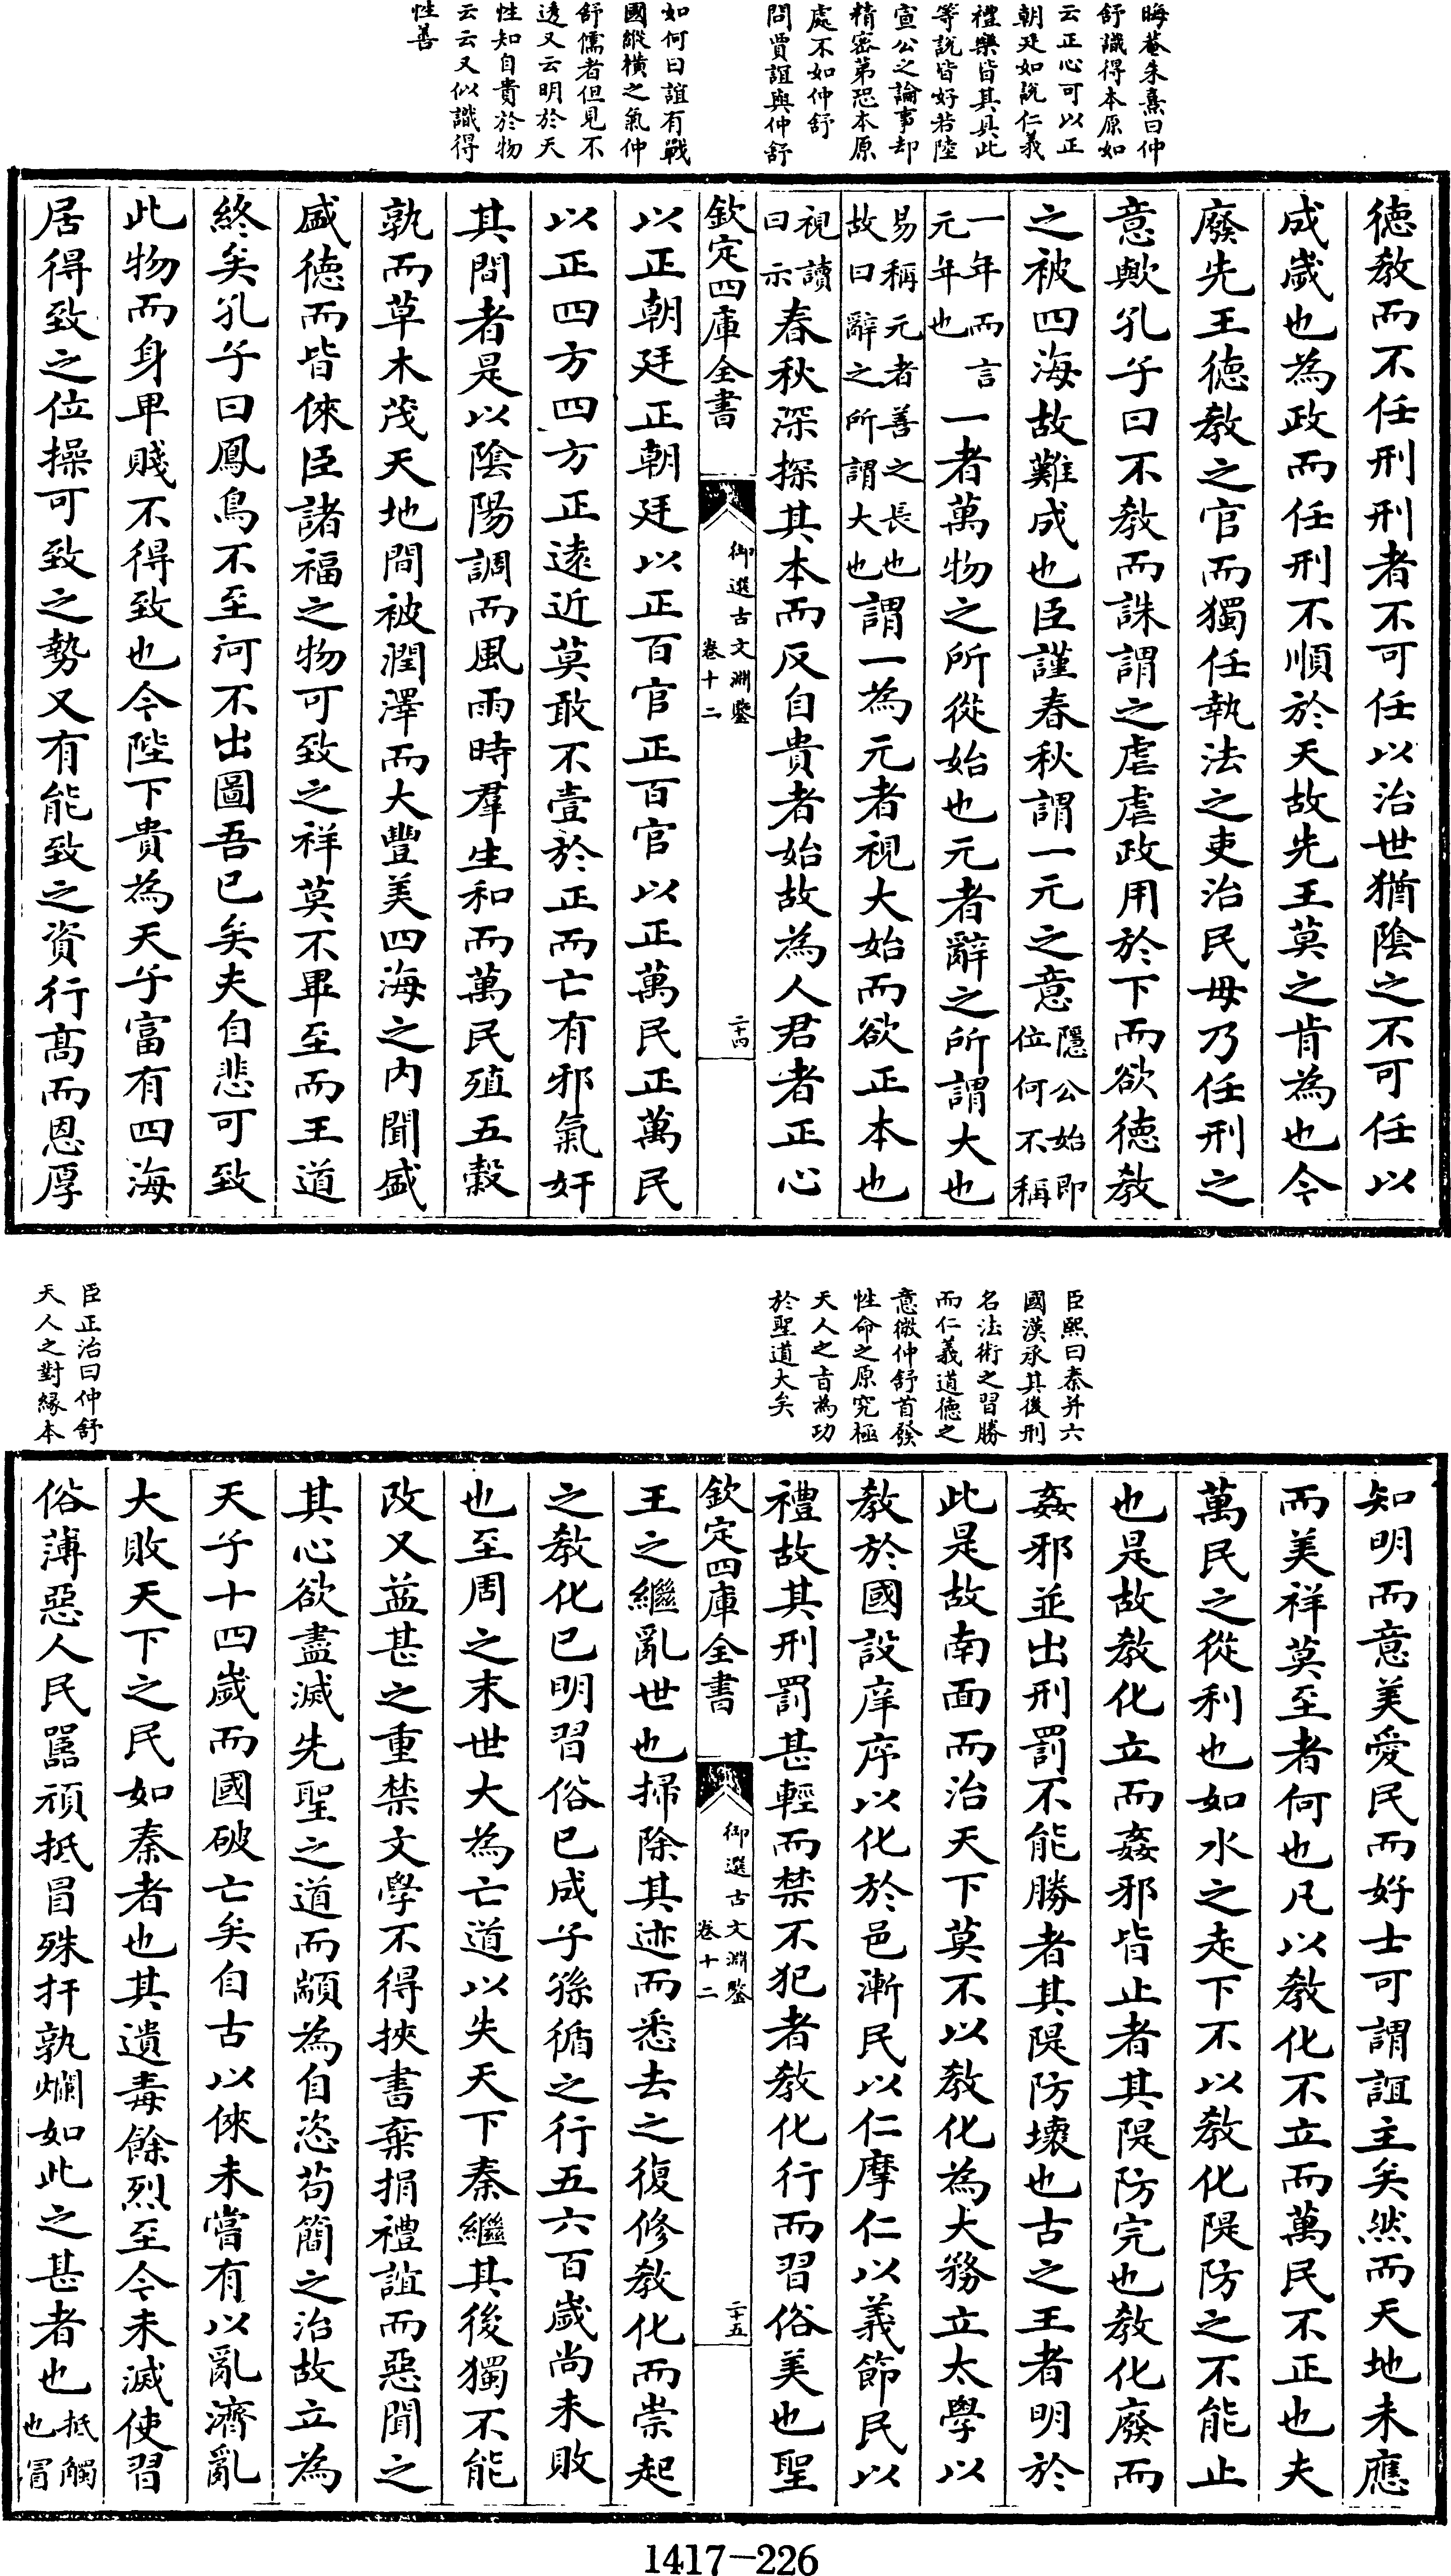 晦菴朱熹曰仲
舒識得本原如
云正心可以正
朝廷如說仁義
禮樂皆其具此
等說皆好若陸
宣公之論事却
精密第恐本原
處不如仲舒
問賈誼與仲舒
如何曰誼有戰
國縱横之氣仲
舒儒者但見不
透又云明於天
性知自貴於物
云云又似識得
性善
德教而不任刑刑者不可任以治世猶陰之不可任以
成歲也為政而任刑不順於天故先王莫之肯為也今
廢先王德教之官而獨任執法之吏治民毋乃任刑之
意歟孔子曰不教而誅謂之虐虐政用於下而欲德教
之被四海故難成也臣謹春秋謂一元之意隱公始即位何不稱
一年而言元年也一者萬物之所從始也元者辭之所謂大也
易稱元者善之長也故曰辭之所謂大也謂一為元者視大始而欲正本也
視讀曰示春秋深探其本而反自貴者始故為人君者正心
欽定四庫全書
御選古文淵鑒
卷十二
二十四
以正朝廷正朝廷以正百官正百官以正萬民正萬民
以正四方四方正遠近莫敢不壹於正而亡有邪氣奸
其間者是以陰陽調而風雨時羣生和而萬民殖五穀
孰而草木茂天地間被潤澤而大豐美四海之内聞盛
盛德而皆倈臣諸福之物可致之祥莫不畢至而王道
終矣孔子曰鳳鳥不至河不出圖吾已矣夫自悲可致
此物而身卑賤不得致也今陛下貴為天子富有四海
居得致之位操可致之勢又有能致之資行高而恩厚
臣熙曰秦并六
國漢承其後刑
名法術之習勝
而仁義道德之
意微仲舒首發
性命之原究極
天人之旨為功
於聖道大矣
臣正治曰仲舒
天人之對緣本
知明而意美愛民而好士可謂誼主矣然而天地未應
而美祥莫至者何也凡以教化不立而萬民不正也夫
萬民之從利也如水之走下不以教化隄防之不能止
也是故教化立而姦邪皆止者其隄防完也教化廢而
姦邪並出刑罰不能勝者其隄防壞也古之王者明於
此是故南面而治天下莫不以教化為大務立太學以
教於國設庠序以化於邑漸民以仁摩仁以義節民以
禮故其刑罰甚輕而禁不犯者教化行而習俗美也聖
欽定四庫全書
御選古文淵鑒
卷十二
二十五
王之繼亂世也掃除其迹而悉去之復修教化而崇起
之教化已明習俗已成子孫循之行五六百歲尚未敗
也至周之末世大為亡道以失天下秦繼其後獨不能
改又益甚之重禁文學不得挾書棄捐禮誼而惡聞之
其心欲盡滅先聖之道而顓為自恣苟簡之治故立為
天子十四歲而國破亡矣自古以倈未嘗有以亂濟亂
大敗天下之民如秦者也其遺毒餘烈至今未滅使習
俗薄惡人民嚚頑抵冒殊扞孰爛如此之甚者也抵觸也冒
1417-226